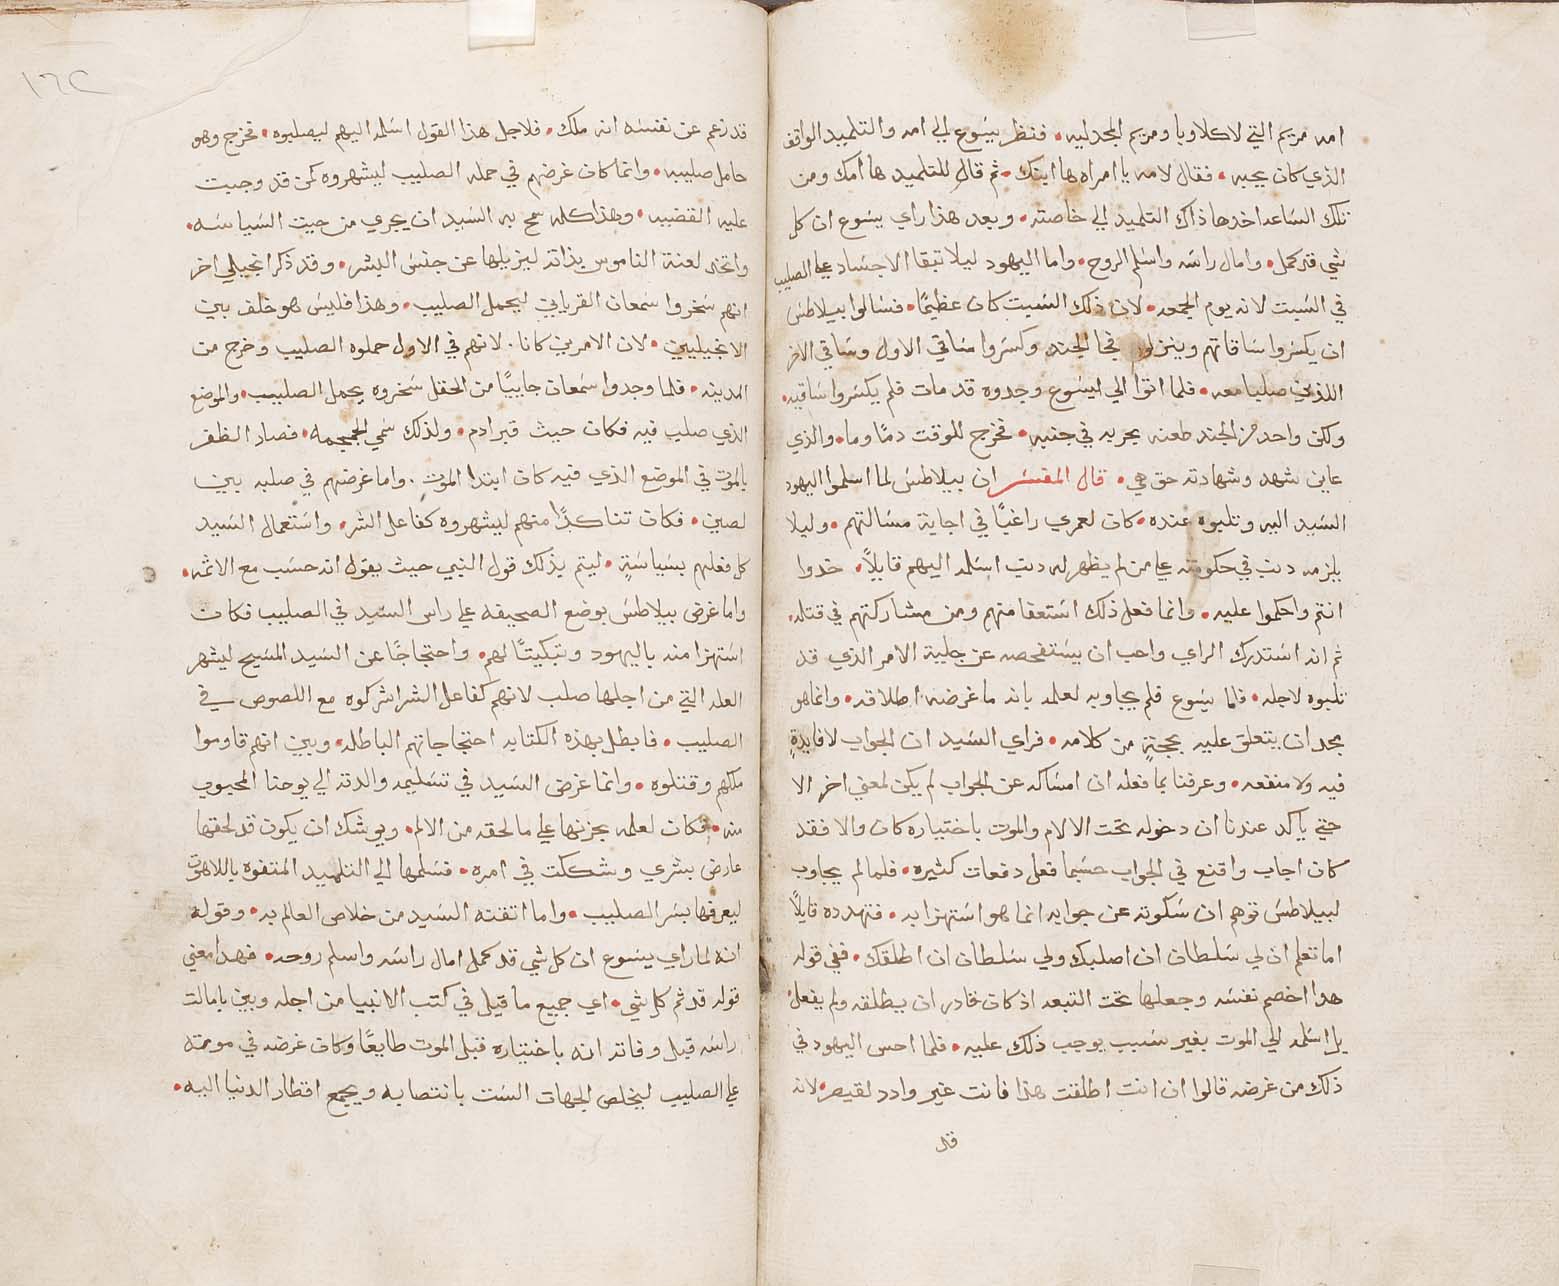 امه مريم التي لاكلاوبا ومريم المجدليه • فنظر يسوع الي امه والتلميد الواقف
الذي كان يحبه • فقال لامه يا امراه ها ابنك • ثم قال للتلميد ها امك ومن
تلك الساعه اخدها ذاك التلميد الي خاصته • وبعد هذا راي يسوع ان كل
شي قد كمل • وامال راسه واسلم الروح • واما اليهود ليلا تبقا الاجساد علي الصليب
في السبت لانه يوم الجمعه • لان ذلك السبت كان عظيمًا • فسالوا بيلاطس
ان يكسروا ساقاتهم وينزلو فجا الجند وكسروا ساقي الاول وساقي الاخر
اللذين صلبا معه • فلما اتوا الي ايسوع وجدوه قد مات فلم يكسروا ساقيه •
ولكن واحد من الجند طعنه بحربه في جنبه • فخرج للوقت دمًا وما • والذي
عاين شهد وشهادته حق هي • قال المفسر ان بيلاطس لما اسلموا اليهود
السيد اليه وتلبوه عنده • كان لعمري راغبًا في اجابة مسالتهم • وليلا
يلزمه دنب في حكومته علي من لم يظهر له دنب اسلمه اليهم قايلاً • خدوا
انتم واحكموا عليه • وانما فعل ذلك استعفا منهم ومن مشاركتهم في قتله •
ثم انه استدرك الراي واحب ان يستفحصه عن جلية الامر الذي قد
تلبوه لاجله • فلما يسوع فلم يجاوبه لعلمه بانه ما غرضه اطلاقه • وانما هو
يجد ان يتعلق عليه بحجةٍ من كلامه • فراي السيد ان الجواب لا فايدةٍ
فيه ولا منفعه • وعرفنا بما فعله ان امساكه عن الجواب لم يكن لمعني اخر الا
حتي ياكد عندنا ان دخوله تحت الالام والموت باختياره كان والا فقد
كان اجاب واقنع في الجواب حسبما فعل دفعات كثيره • فلما لم يجاوب
لبيلاطس توهم ان سكوته عن جوابه انما هو استهزا به • فتهدده قايلاً
اما تعلم ان لي سلطان ان اصلبك ولي سلطان ان اطلقك • ففي قوله
هدا اخصم نفسه وجعلها تحت التبعه اذ كان قادر ان يطلقه ولم يفعل
بل اسلمه الي الموت بغير سبب يوجب ذلك عليه • فلما احس اليهود في
ذلك من غرضه قالوا ان انت اطلقت هذا فانت غير وادد لقيصر • لانه
قد
١٦٢
قد زعم عن نفسه انه ملك • فلاجل هذا القول اسلمه اليهم ليصلبوه • فخرج وهو
حامل صليبه • وانما كان غرضهم في حمله الصليب ليشهروه كمن قد وجبت
عليه القضيه • وهذا كله سمح به السيد ان يجري من حيت السياسه •
واتخد لعنة الناموس بذاته ليزيلها عن جنس البشر • وقد ذكر انجيلي اخر
انهم سخروا سمعان القرياني ليحمل الصليب • وهذا فليس هو خلف بين
الانجيليين • لان الامرين كانا • لانهم في الاول حملوه الصليب وخرج من
المدينه • فلما وجدوا سمعان جاييًا من الحقل سخروه يحمل الصليب • والموضع
الذي صلب فيه فكان حيث قبر ادم • ولذلك سمي الجمجمه • فصار الظفر
بالموت في الموضع الذي فيه كان ابتدا الموت • واما غرضهم في صلبه بين
لصين • فكان تناكدًا منهم ليشهروه كفاعل الشر • واستعمال السيد
كل فعلهم بسياسةٍ • ليتم بذلك قول النبي حيث يقول انه حسب مع الاثمه •
واما غرض بيلاطس بوضع الصحيفه علي راس السيد في الصليب فكان
استهزا منه باليهود وتبكيتًا لهم • واحتجاجًا عن السيد المسيح ليشهر
العله التي من اجلها صلب لانهم كفاعل الشر اشركوه مع اللصوص في
الصليب • فابطل بهذه الكتابه احتجاجاتهم الباطله • وبين انهم قاوموا
ملكهم وقتلوه • وانما غرض السيد في تسليمه والدته الي يوحنا المحبوب
منه • فكان لعلمه بحزنها علي ما لحقه من الالم • ويوشك ان يكون قد لحقها
عارض بشري وشككت في امره • فسلمها الي التلميد المتفوه باللاهوت
ليعرفها بسر الصليب • واما اتقنه السيد من خلاص العالم به • وقوله
انه لما راي يسوع ان كل شي قد كمل امال راسه واسلم روحه • فهدا معني
قوله قد تم كل شي • اي جميع ما قيل في كتب الانبيا من اجله وبين بامالت
راسه قبل وفاته انه باختياره قبل الموت طايعًا وكان غرضه في موته
علي الصليب ليخلص الجهات الست بانتصابه ويجمع اقطار الدنيا اليه •